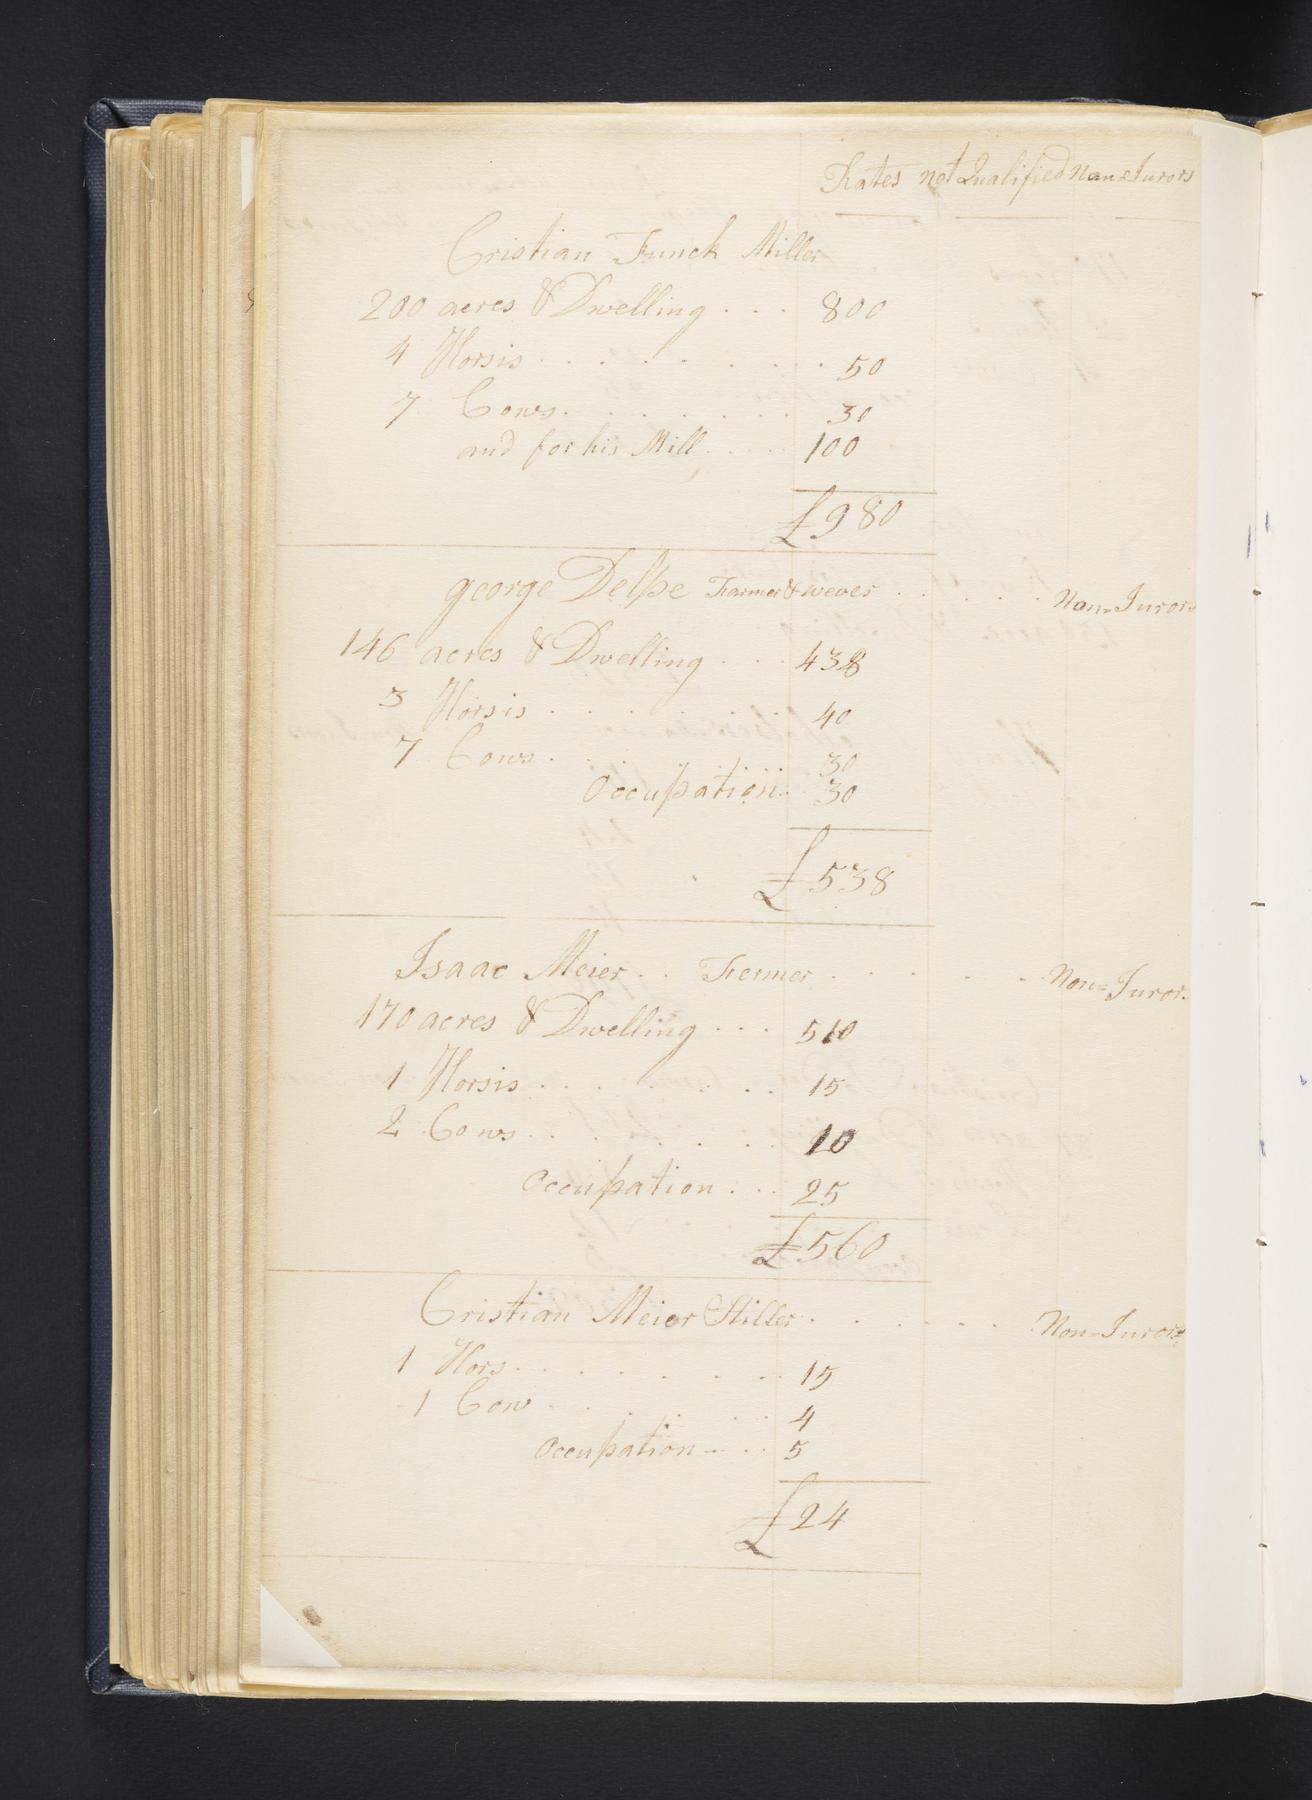 Rates not Qualified Non=Jurors
Cristian Funck Miller
200 acres & Dwelling . . . 800
4 Horsis . . . . . . . . 50
7 Cows . . . . . . . 30
and for his Mill . . . . 100
£980
george Delpe Farmer & wever . . . . . Non=Jurors
146 acres & Dwelling . . . 438
3 Horsis . . . . . . . 40
7 Cows . . . . . . . 30
Occupation . . 30
£538
Isaac Meier . . Fermer . . . . . . Non=Juror
170 acres & Dwelling . . . 510
1 Horsis . . . . . . . 15
2 Cows . . . . . . . 10
Occupation . . . 25
£560
Cristian Meier Stiller . . . . . . Non=Jurors
1 Hors . . . . . . . . 15
1 Cow . . . . . . 4
Occupation . . . 5
£24